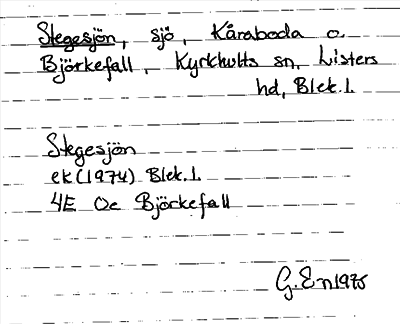 Stegesjön, sjö, Kåraboda o.
Björkefall, Kyrkhults sn, Listers
hd, Blek. l.
Stegesjön
ek (1974) Blek. l.
4E 0e Björkefall
G. En 1975